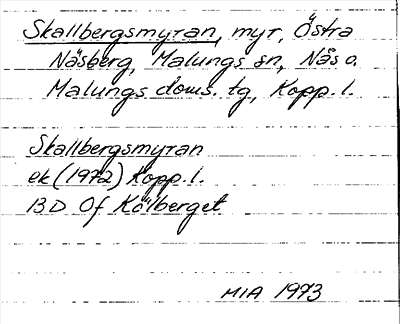 Skallbergsmyran, myr, Östra
Näsberg, Malungs sn, Nås o.
Malungs doms. tg, Kopp. l.
Skallbergsmyran
ek (1972) Kopp. l.
13D Of Kölberget
MIA 1973